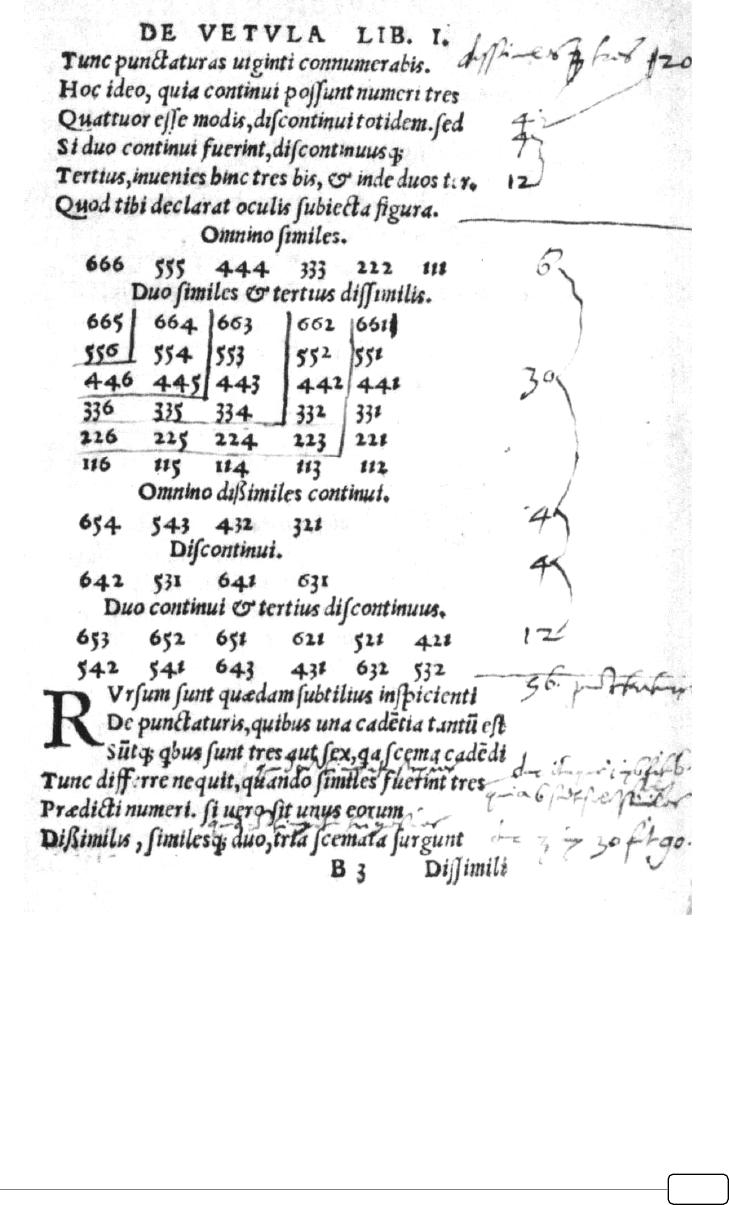 DE VETVLA LIB. I.
Tunc punctaturas uiginti connumerabis.
Hoc ideo, quia continui possunt numeri tres
Quattuor esse modis, discontinui totidem. sed
Si duo continui fuerint, discontinuusq;
Tertius, inuenies hinc tres bis, & inde duos ter.
Quod tibi declarat oculis subiecta figura.
120
4
4
12
Omnino similes.
666 555 444 333 222 111
6
Duo similes & tertius dissimilis.
665 664 663 662 661
556 554 553 552 551
446 445 443 442 441
30
336 335 334 332 331
226 225 224 223 221
116 115 114 113 112
Omnino dißimiles continui.
654 543 432 321
4
Discontinui.
642 531 641 631
4
Duo continui & tertius discontinuus.
653 652 651 621 521 421
12
542 541 643 431 632 532
56.
RVrsum sunt quædam subtilius inspicienti
De punctaturis, quibus una cadētia tantū est
Sūtq; qbus sunt tres aut sex, qa scema cadēdi
Tunc differre nequit, quando similes fuerint tres
Prædicti numeri. si uero sit unus eorum
Dißimilis, similesq; duo, tria scemata surgunt
30 90.
B 3 Dissimili